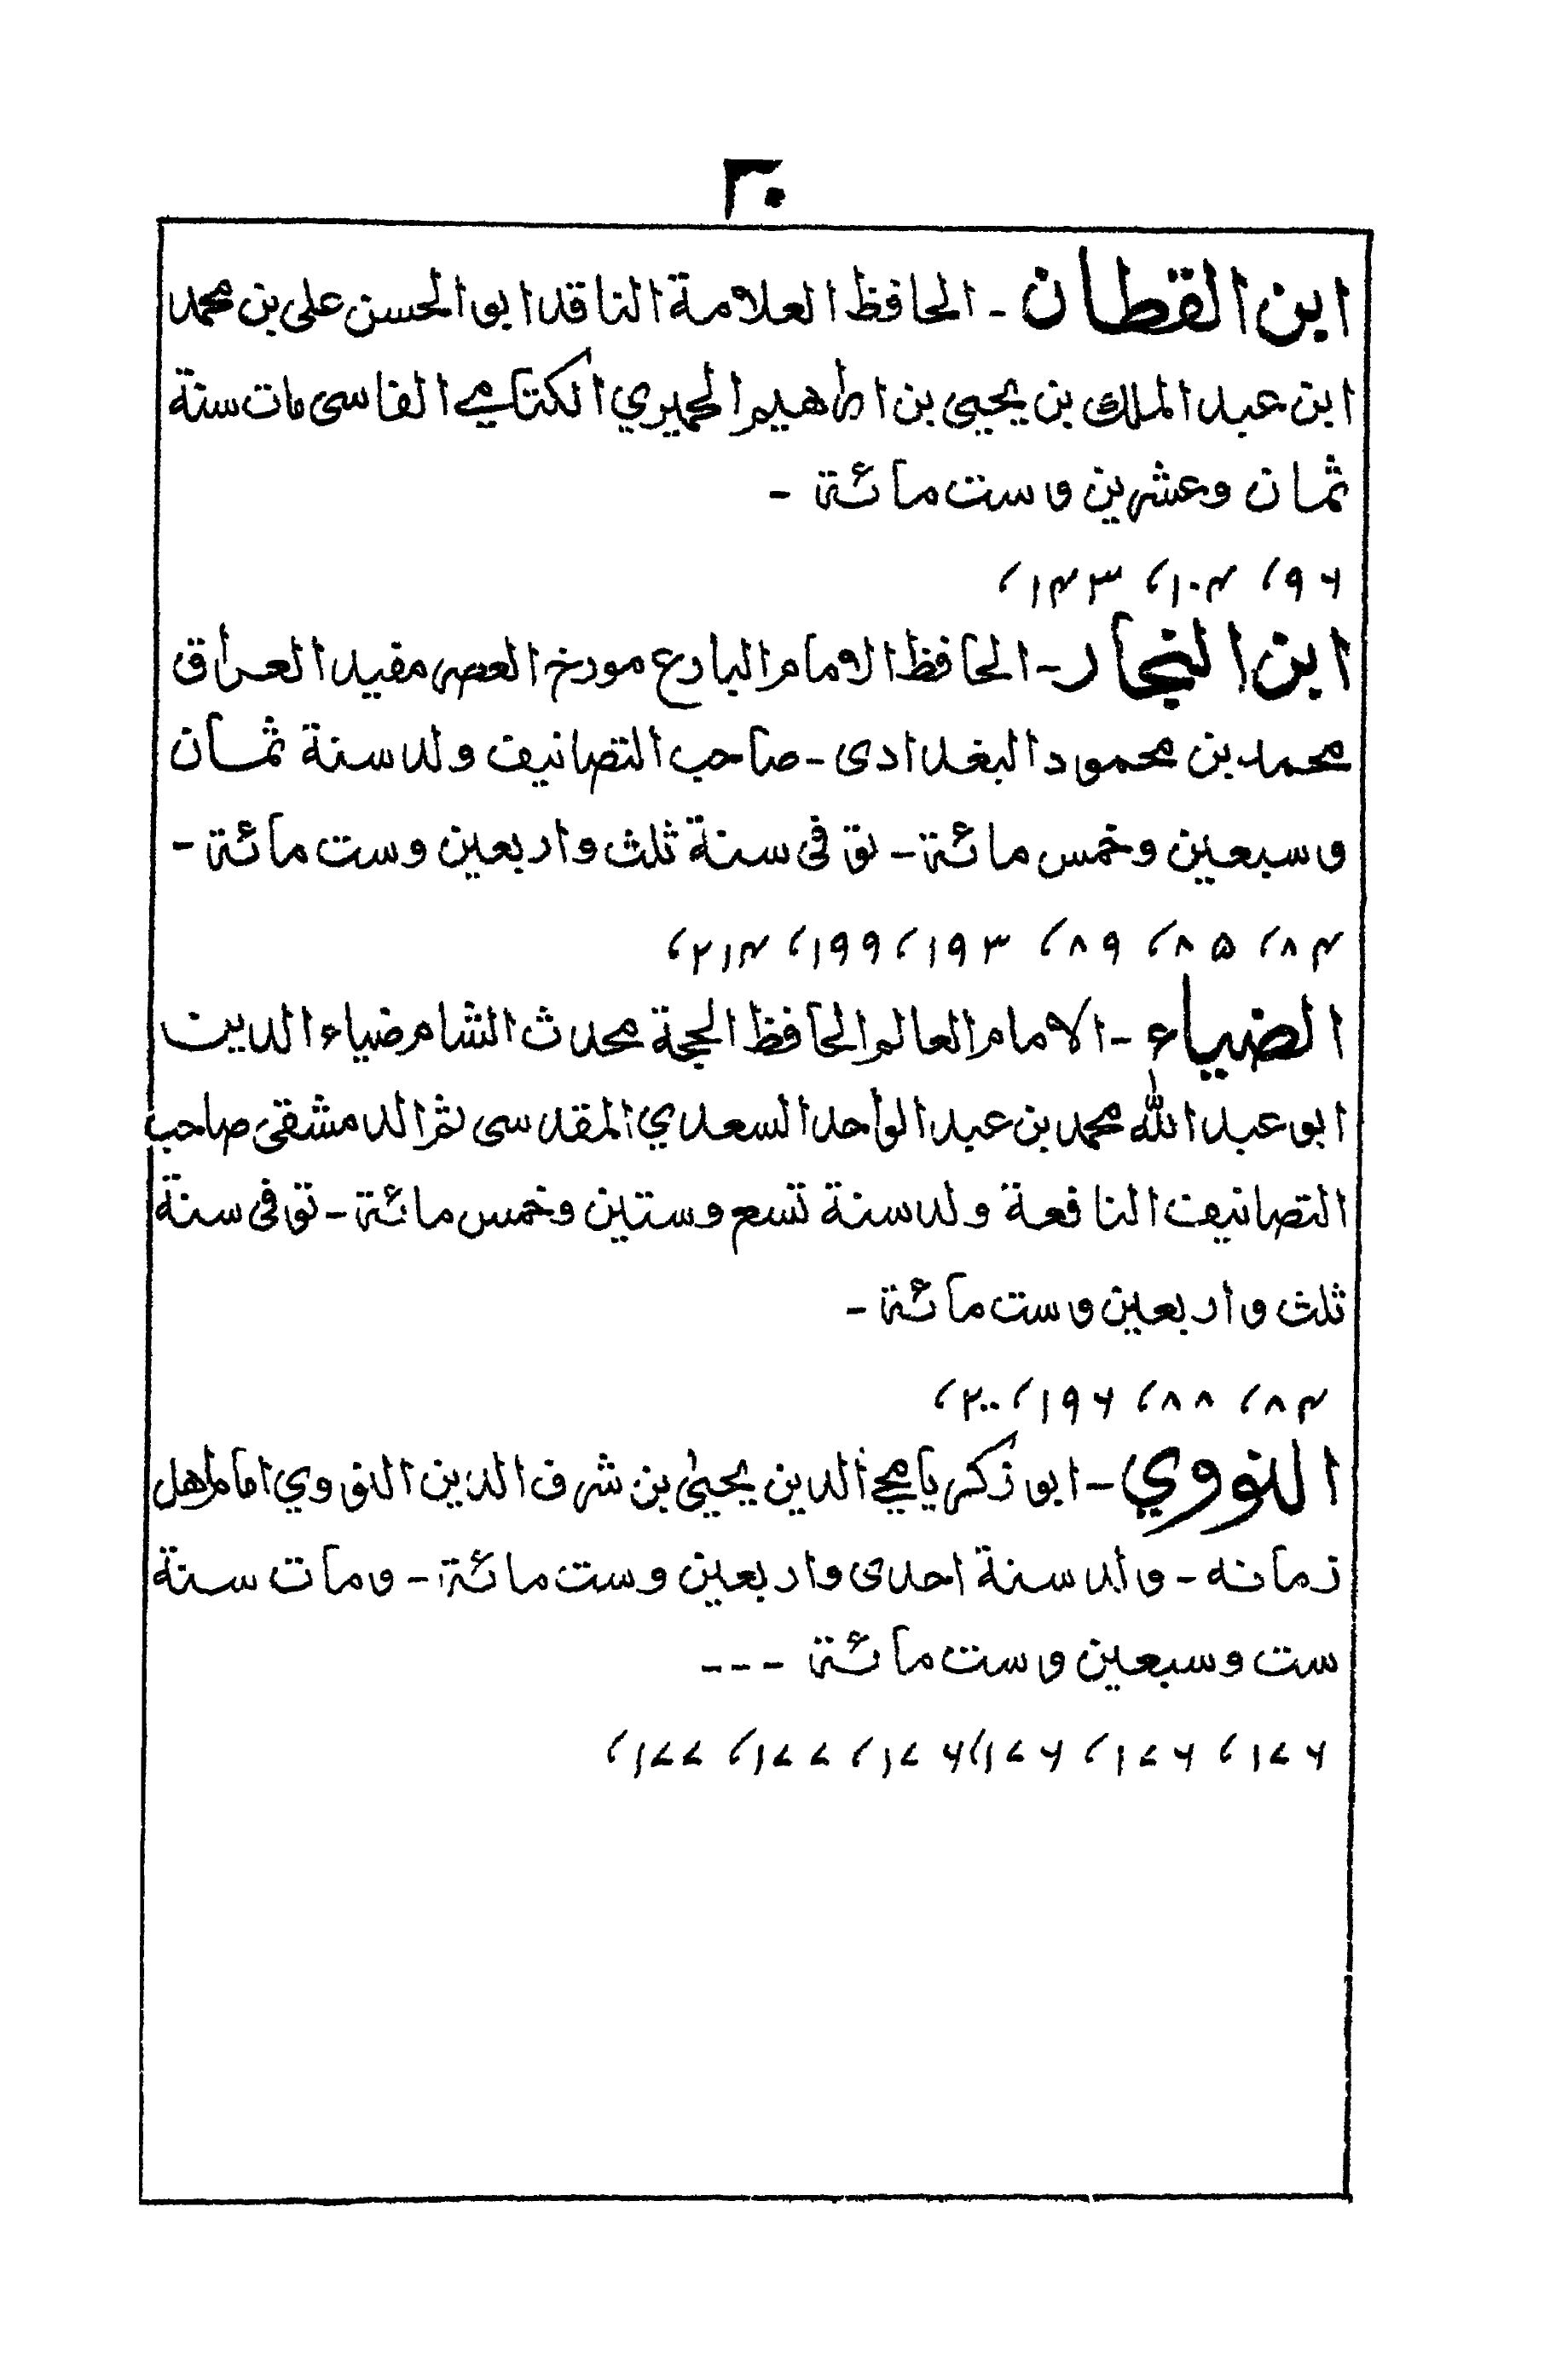 ٣٠
ابن القطان - الحافظ العلامة الناقد ابو الحسن علی بن محمد
ابن عبد الملك بن يحيی بن ابراهيم الحميري الكتامي الفاسی مات سنة
ثمان وعشرين و ست مائة -
۹۶، ۱۰۴، ۱۴۳،
ابن النجار - الحافظ الامام البارع مورخ العصر مفيد العراق
محمد بن محمود البغدادی - صاحب التصانيف ولد سنة ثمان
و سبعين وخمس مائة - توفی سنة ثلث واربعين وست مائة -
۸۴، ۸۵، ۸۹، ۱۹۳، ۱۹۹، ۲۱۴،
الضياء - الامام العالم الحافظ الحجة محدث الشام ضياء الدين
ابو عبد الله محمد بن عبد الواحد السعدي المقدسی ثم الدمشقی صاحب
التصانيف النافعة ولد سنة تسع وستين وخمس مائة - توفی سنة
ثلث واربعين وست مائة -
۸۴، ۸۸، ۱۹۶، ۲۰۰،
النووي - ابو زكريا محي الدين يحيیٰ بن شرف الدين النووي امام اهل
زمانه - ولد سنة احدی واربعين وست مائة - ومات سنة
ست وسبعين وست مائة - - -
۱۷۶، ۱۷۶، ۱۷۶، ۱۷۶، ۱۷۷، ۱۷۷،